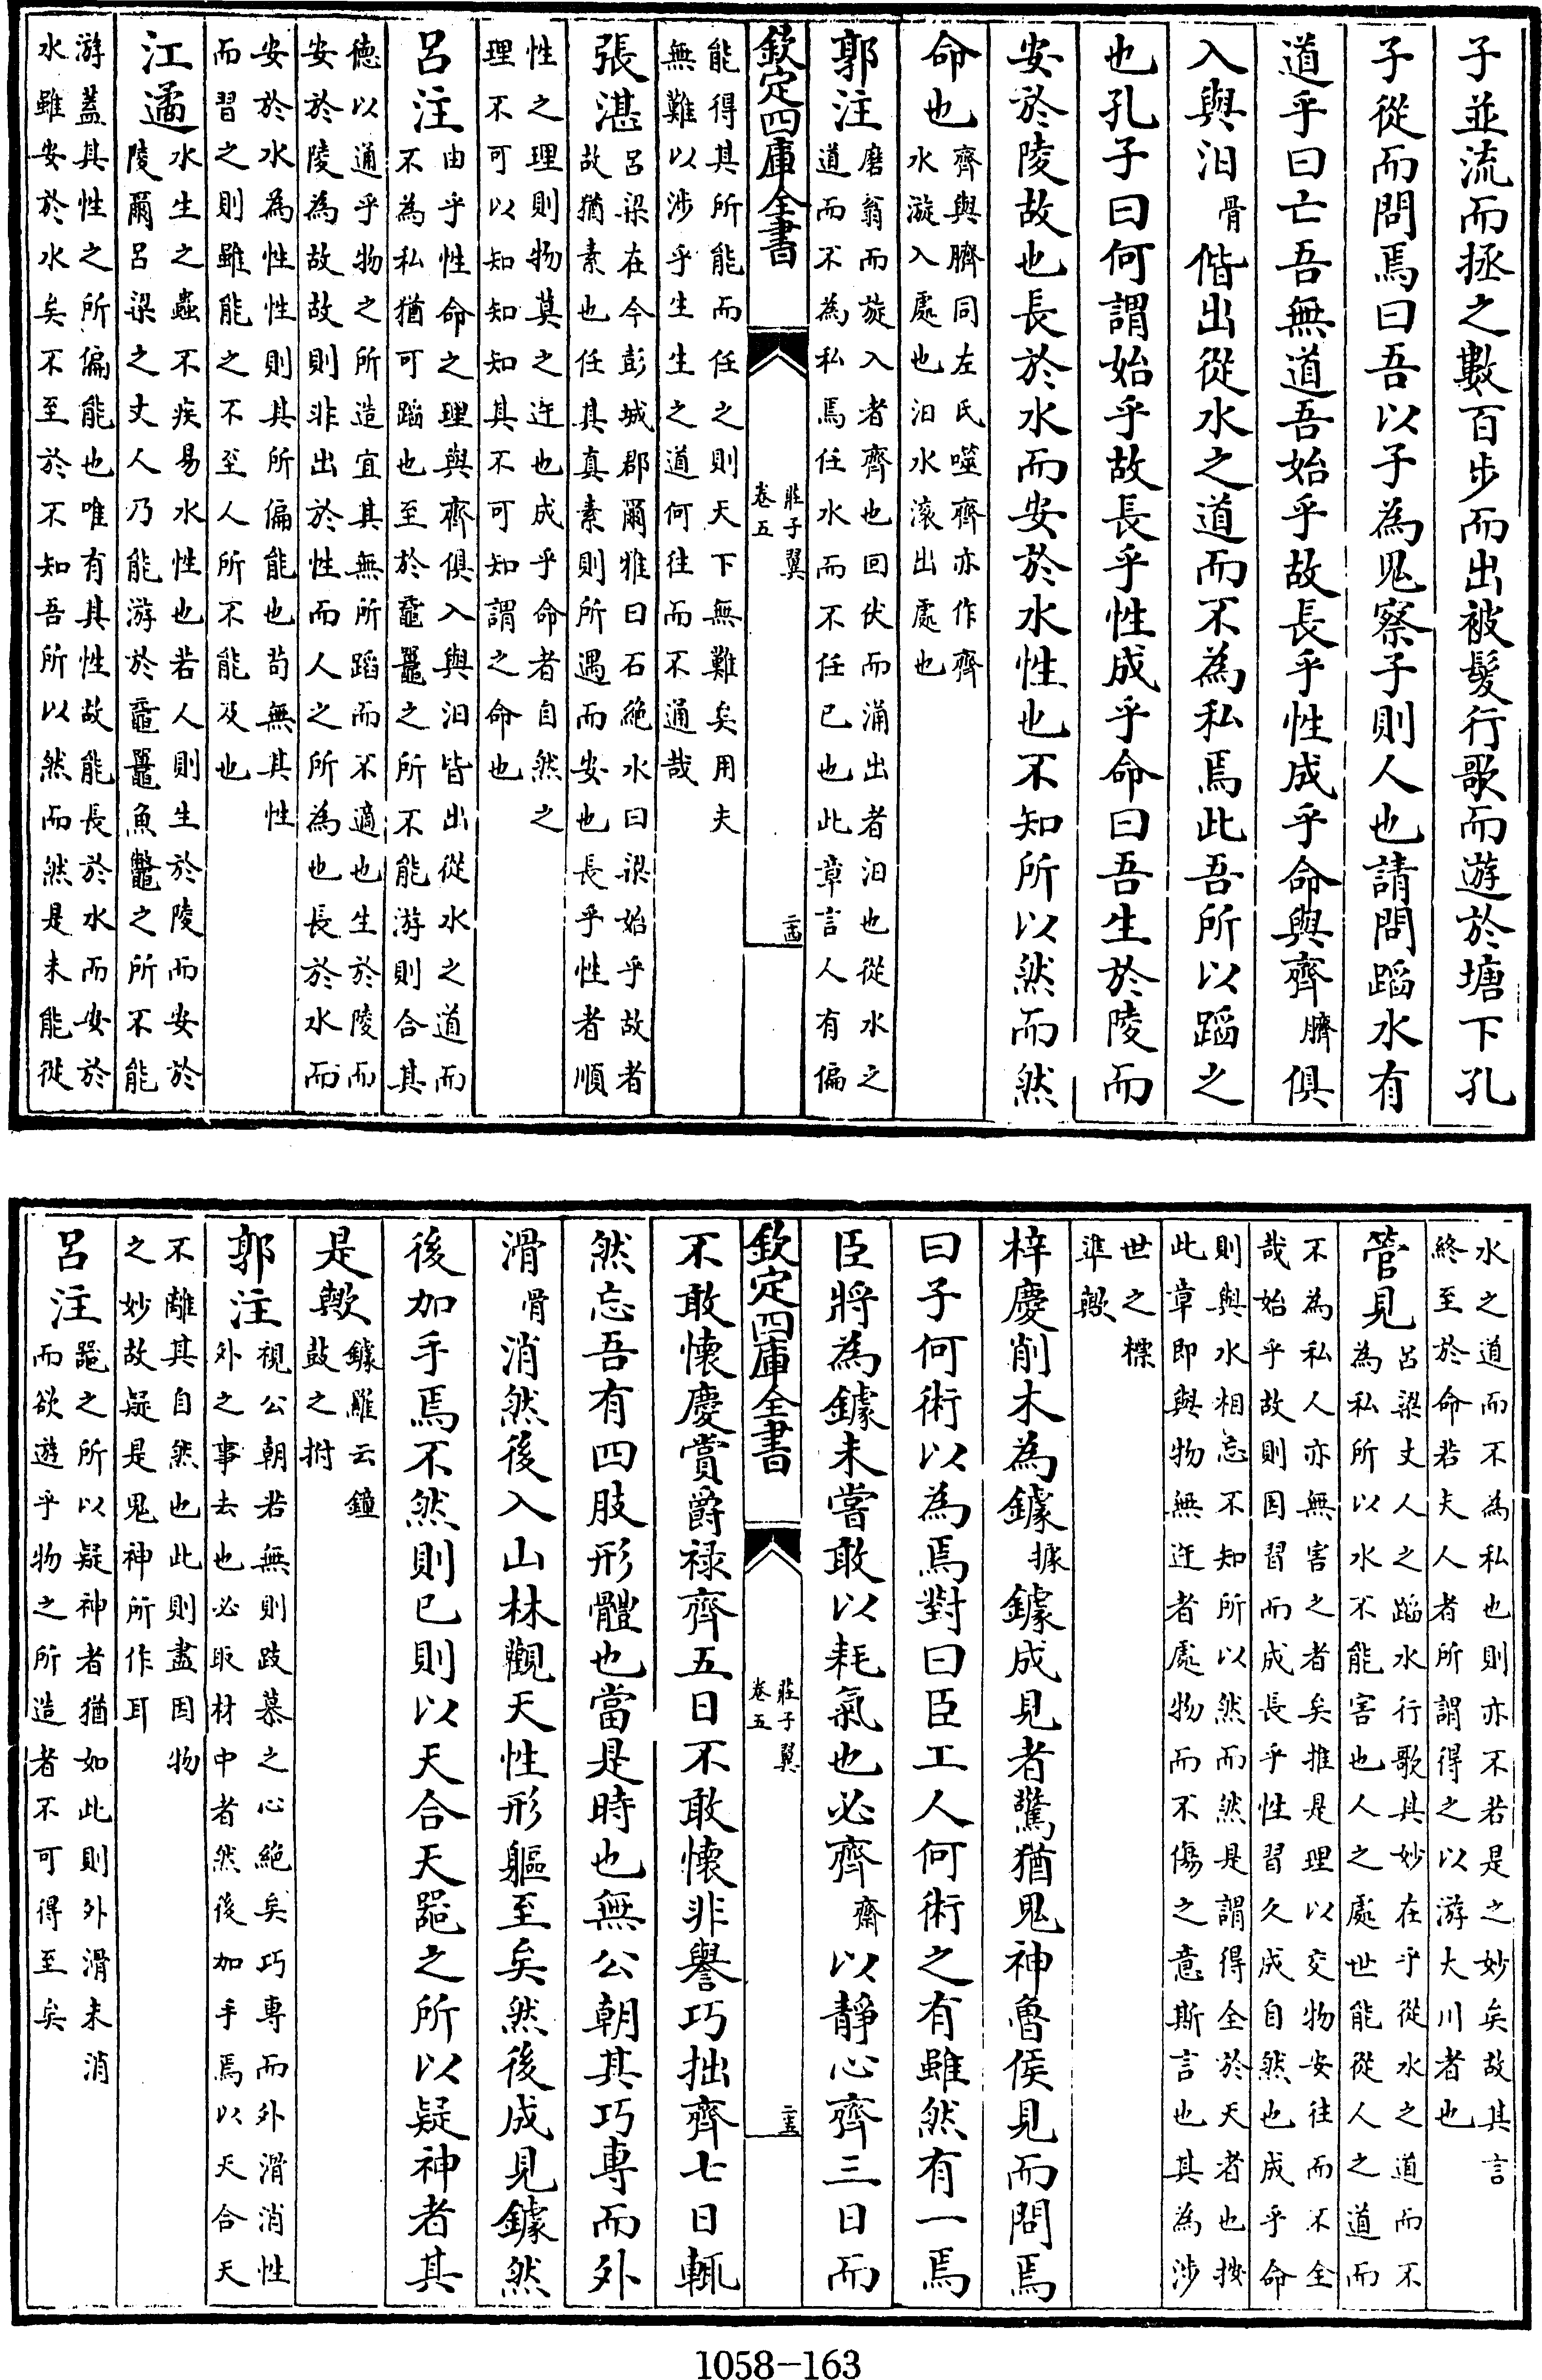 子並流而拯之數百步而出被髮行歌而遊於塘下孔
子從而問焉曰吾以子為鬼察子則人也請問蹈水有
道乎曰亡吾無道吾始乎故長乎性成乎命與齊臍俱
入與汩骨偕出從水之道而不為私焉此吾所以蹈之
也孔子曰何謂始乎故長乎性成乎命曰吾生於陵而
安於陵故也長於水而安於水性也不知所以然而然
命也
齊與臍同左氏噬齊亦作齊
水漩入處也汩水滾出處也
郭注
磨翁而旋入者齊也回伏而涌出者汩也從水之
道而不為私焉任水而不任已也此章言人有偏
欽定四庫全書
莊子翼
卷五
二十四
能得其所能而任之則天下無難矣用夫
無難以涉乎生生之道何往而不通哉
張湛
呂梁在今彭城郡爾雅曰石絶水曰梁始乎故者
故猶素也任其真素則所遇而安也長乎性者順
性之理則物莫之迕也成乎命者自然之
理不可以知知知其不可知謂之命也
呂注
由乎性命之理與齊俱入與汩皆出從水之道而
不為私猶可蹈也至於黿鼉之所不能游則合其
德以通乎物之所造宜其無所蹈而不適也生於陵而
安於陵為故故則非出於性而人之所為也長於水而
安於水為性性則其所偏能也苟無其性
而習之則雖能之不至人所不能及也
江遹
水生之蟲不疾易水性也若人則生於陵而安於
陵爾呂梁之丈人乃能游於黿鼉魚鼈之所不能
游蓋其性之所偏能也唯有其性故能長於水而安於
水雖安於水矣不至於不知吾所以然而然是未能從
水之道而不為私也則亦不若是之妙矣故其言
終至於命若夫人者所謂得之以游大川者也
管見
呂梁丈人之蹈水行歌其妙在乎從水之道而不
為私所以水不能害也人之處世能從人之道而
不為私人亦無害之者矣推是理以交物安往而不全
哉始乎故則因習而成長乎性習久成自然也成乎命
則與水相忘不知所以然而然是謂得全於天者也按
此章即與物無迕者處物而不傷之意斯言也其為涉
世之標
準歟
梓慶削木為鐻據鐻成見者驚猶鬼神魯侯見而問焉
曰子何術以為焉對曰臣工人何術之有雖然有一焉
臣將為鐻未嘗敢以耗氣也必齊齋以靜心齊三日而
欽定四庫全書
莊子翼
卷五
二十五
不敢懷慶賞爵祿齊五日不敢懷非譽巧拙齊七日輒
然忘吾有四肢形體也當是時也無公朝其巧專而外
滑骨消然後入山林觀天性形軀至矣然後成見鐻然
後加手焉不然則已則以天合天器之所以疑神者其
是歟
鐻雖云鐘
鼓之柎
郭注
視公朝若無則跂慕之心絶矣巧專而外滑消性
外之事去也必取材中者然後加手焉以天合天
不離其自然也此則盡因物
之妙故疑是鬼神所作耳
呂注
器之所以疑神者猶如此則外滑未消
而欲遊乎物之所造者不可得至矣
1058-163